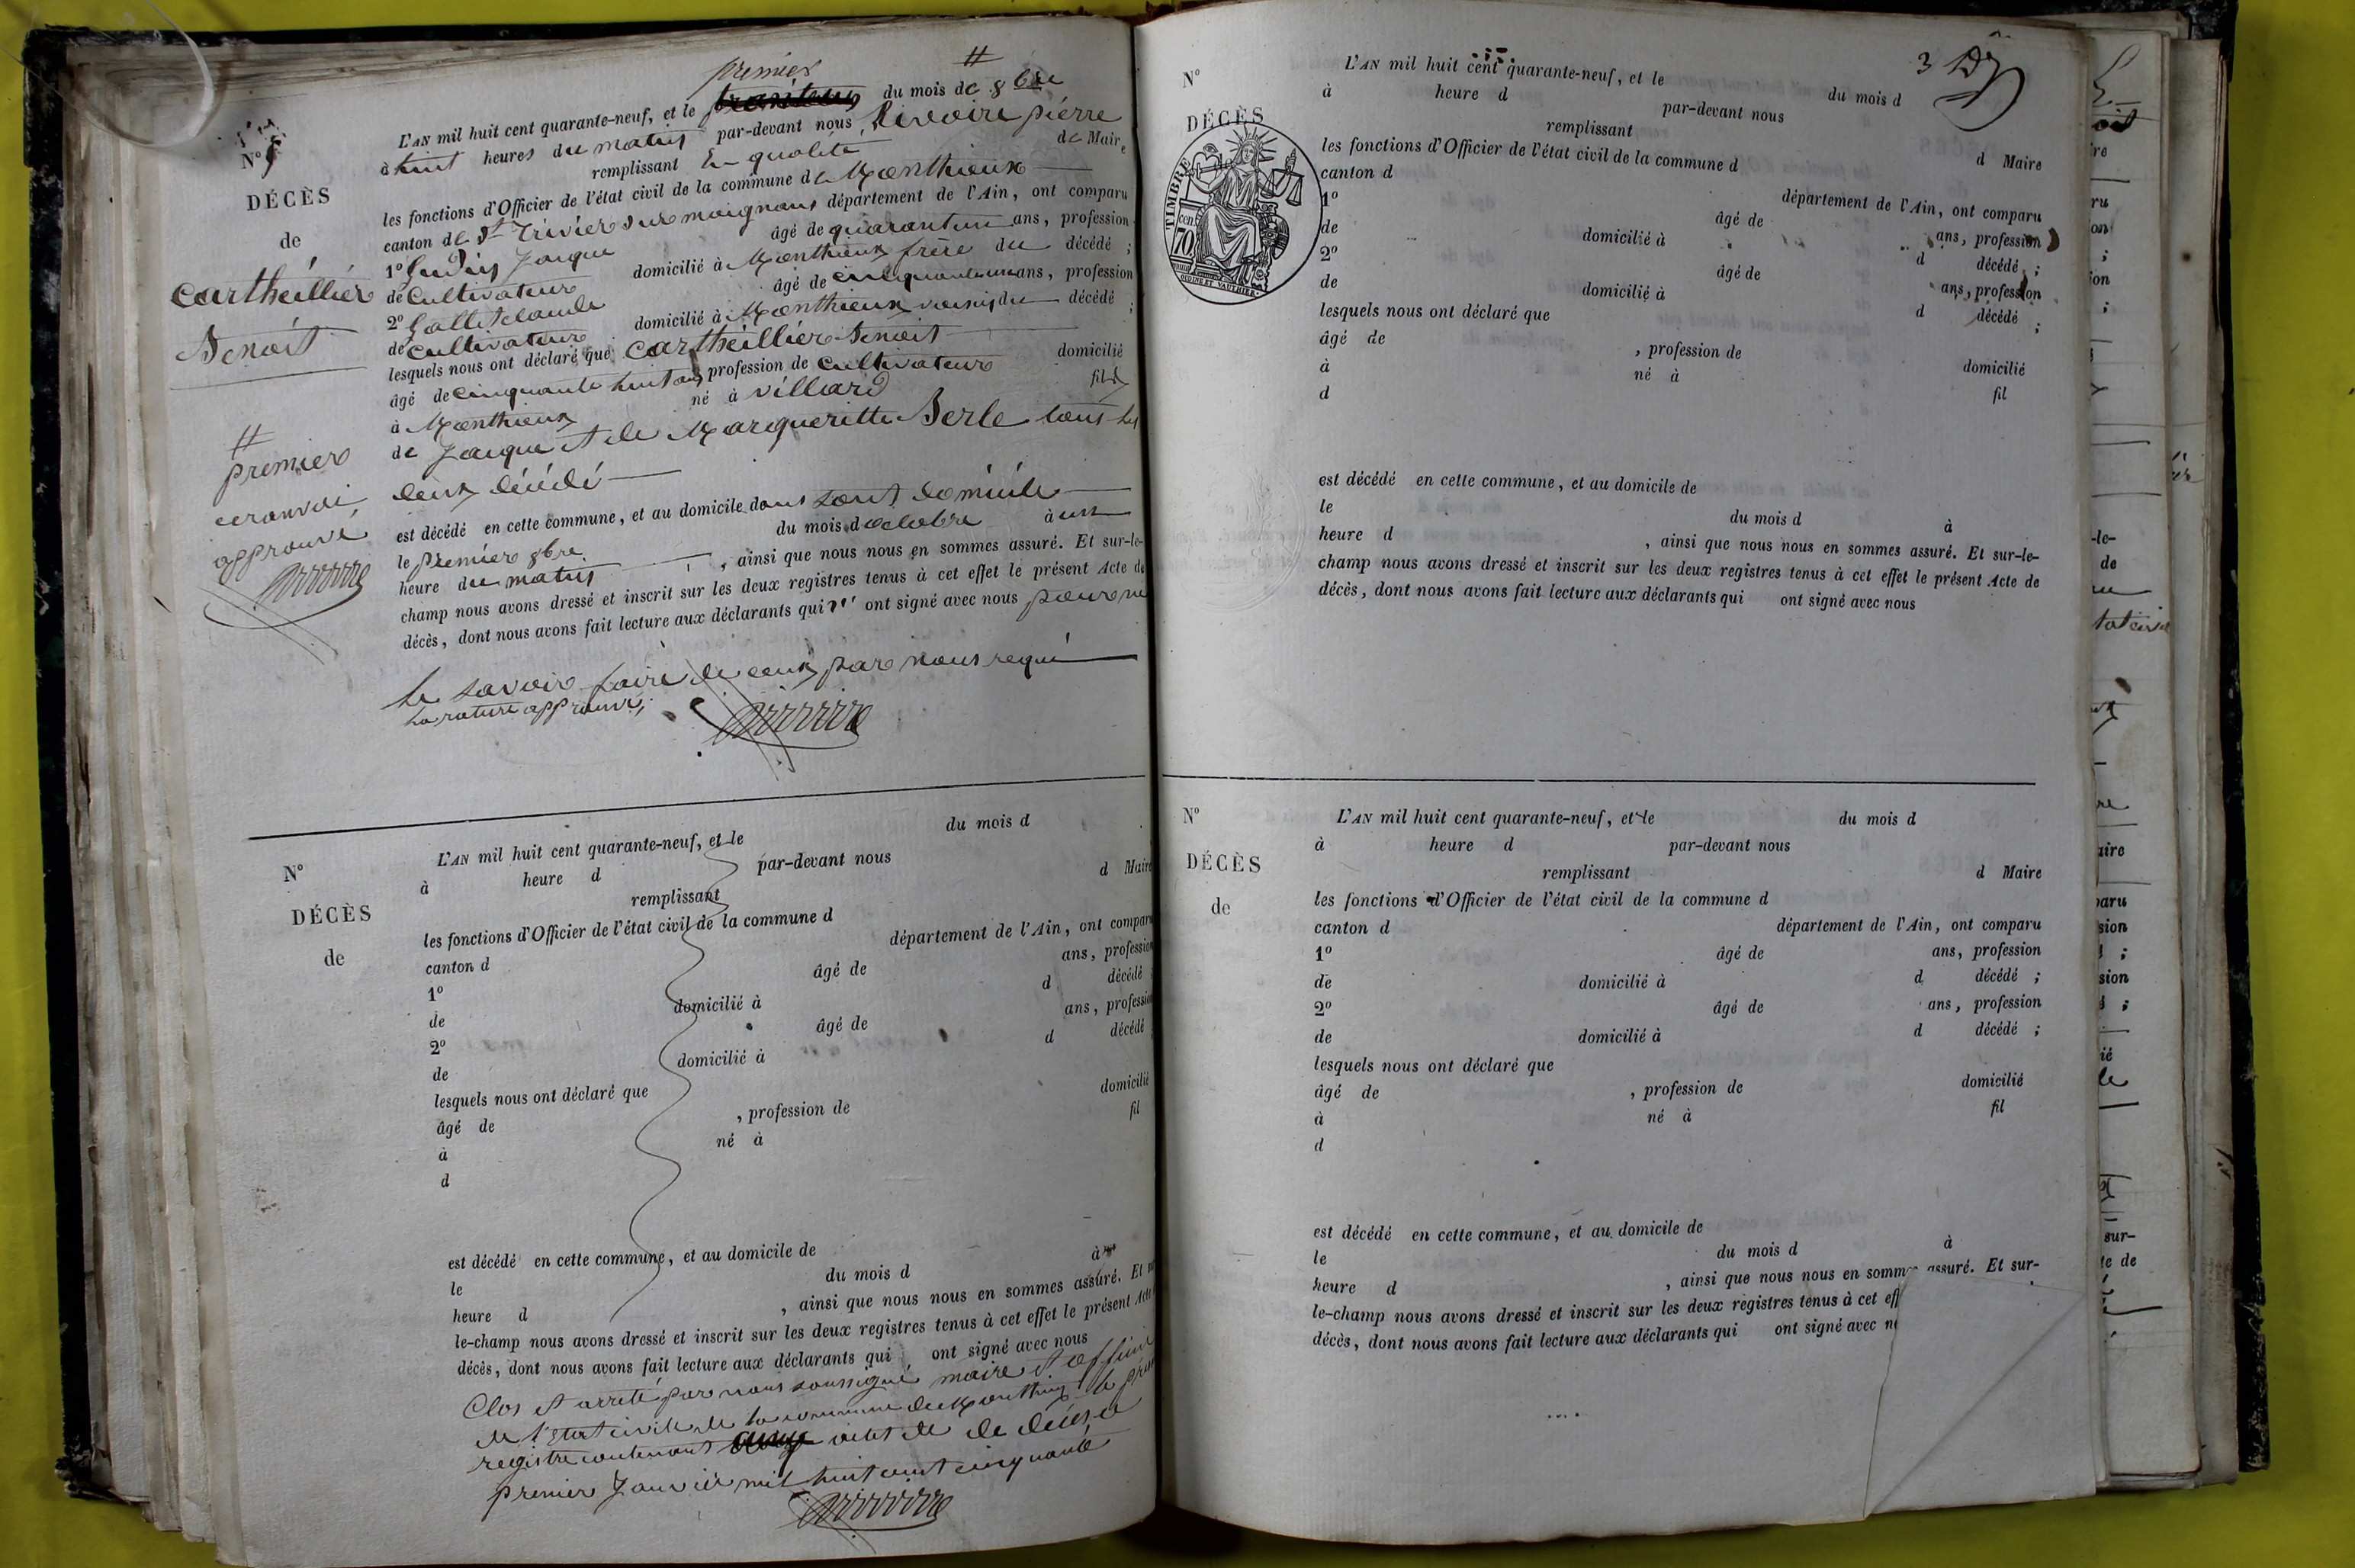 premier #
L'AN mil huit cent quarante-neuf, et le du mois de 8bre
à huit heures du matin par-devant nous Rivoire pierre
remplissant En qualité de Maire
les fonctions d'Officier de l'état civil de la commune de Monthieux
canton de St Trivier sur moignans département de l'Ain, ont comparu
1º Jacque âgé de quarantun ans, profession
de Cultivateur domicilié à Monthieux frère du décédé ;
2º Gallet claude âgé de cinquanteun ans, profession
de cultivateur domicilié à Monthieux voisin du décédé ;
lesquels nous ont déclaré que cartheillier Benoit
âgé de cinquante huit ans profession de cultivateur domicilié
à Monthieux né à villard fils
de Jacque et de Margueritte Berle tous les
deux décédé
est décédé en cette commune, et au domicile dans sont domicile
le premier 8bre du mois d octobre à une
heure du matin , ainsi que nous nous en sommes assuré. Et sur-le-
champ nous avons dressé et inscrit sur les deux registres tenus à cet effet le présent Acte de
décès, dont nous avons fait lecture aux déclarants qui n' ont signé avec nous pour ne
le savoir faire de ceux par nous requi
la rature approuvé
Nº
DÉCÈS
de
cartheillier
Benoit
#
premier
approuvé
Nº
DÉCÈS
de
L'AN mil huit cent quarante-neuf, et le du mois d
à heure d par-devant nous
remplissant d Maire
les fonctions d'Officier de l'état civil de la commune d
canton d département de l'Ain, ont comparu
1º âgé de ans, profession
de domicilié à d décédé ;
2º âgé de ans, profession
de domicilié à d décédé ;
lesquels nous ont déclaré que
âgé de , profession de domicilié
à né à fil
d
est décédé en cette commune, et au domicile de
le du mois d à
heure d , ainsi que nous nous en sommes assuré. Et sur-
le-champ nous avons dressé et inscrit sur les deux registres tenus à cet effet le présent Acte
décès, dont nous avons fait lecture aux déclarants qui ont signé avec nous
Clos et arrêté par nous soussigné maire et officie
de l'Etat civille de la commune de Monthieux le
registre contenant actes de de décès ce
premier Janvier mil huit cent cinquante
3
Nº
DÉCÈS
TIMBRE
cen
70
OUDINÉ ET VAUTHIER
L'AN mil huit cent quarante-neuf, et le du mois d
à heure d par-devant nous
remplissant d Maire
les fonctions d'Officier de l'état civil de la commune d
canton d département de l'Ain, ont comparu
1º âgé de ans, profession
de domicilié à d décédé ;
2º âgé de ans, profession
de domicilié à d décédé ;
lesquels nous ont déclaré que
âgé de , profession de domicilié
à né à fil
d
est décédé en cette commune, et au domicile de
le du mois d à
heure d , ainsi que nous nous en sommes assuré. Et sur-le-
champ nous avons dressé et inscrit sur les deux registres tenus à cet effet le présent Acte de
décès, dont nous avons fait lecture aux déclarants qui ont signé avec nous
Nº
DÉCÈS
de
L'AN mil huit cent quarante-neuf, et le du mois d
à heure d par-devant nous
remplissant d Maire
les fonctions d'Officier de l'état civil de la commune d
canton d département de l'Ain, ont comparu
1º âgé de ans, profession
de domicilié à d décédé ;
2º âgé de ans, profession
de domicilié à d décédé ;
lesquels nous ont déclaré que
âgé de , profession de domicilié
à né à fil
d
est décédé en cette commune, et au domicile de
le du mois d à
heure d , ainsi que nous nous en somm assuré. Et sur-
le-champ nous avons dressé et inscrit sur les deux registres tenus à cet eff
décès, dont nous avons fait lecture aux déclarants qui ont signé avec n